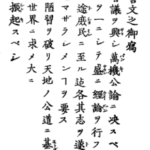 誓文之御寫
會議ヲ興シ萬機公論ニ決スヘシ
ヲ一ニシテ盛ニ經論ヲ行フ
途庶民ニ至ル迄各其志ヲ遂
マサラシメンヿヲ要ス
陋習ヲ破リ天地ノ公道ニ基
世界ニ求メ大ニ
振起スベシ